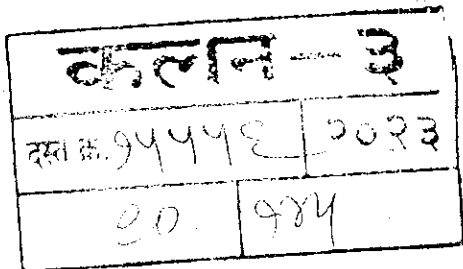 कलन - ३
दस्त क्र. १५५५६ २०२३
९० १४५